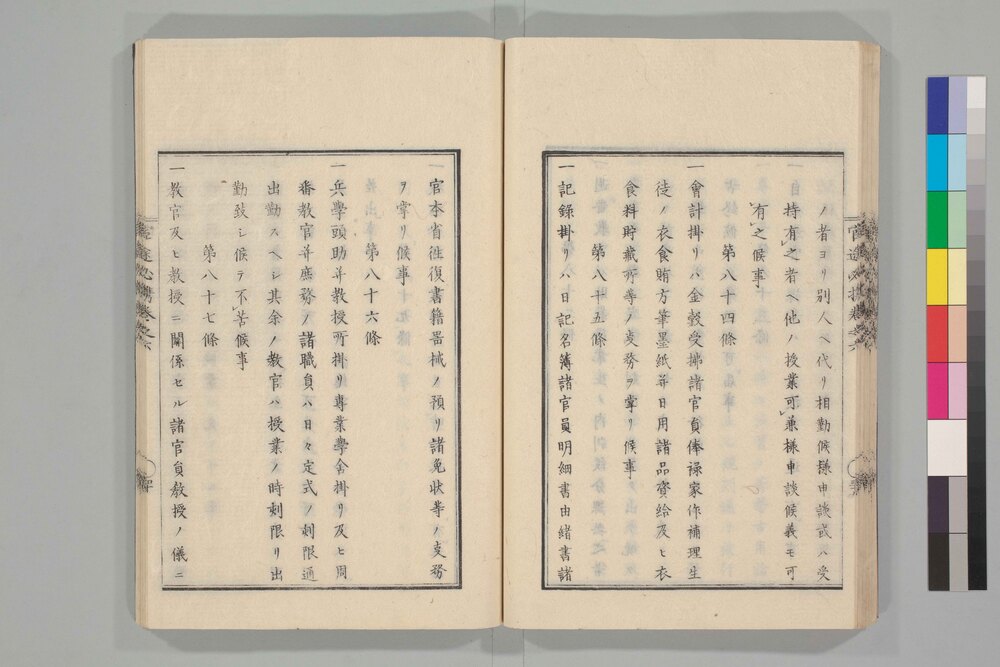 ノ者ヨリ別人ヘ代リ相勤候様申談或ハ受
持有之者ヘ他ハ授業可兼様申談候義モ可
有之候事
第八十四條
一會計掛リハ金穀受拂諸官員俸祿家作補理生
徒ノ衣食賄方筆墨紙并日用諸品資給及ヒ衣
食料貯藏所等ノ支務ヲ掌リ候事
第八十五條
一記錄掛リハ日記名簿諸官員明細書由緒書諸
官本省往復書籍器械ノ預リ諸免狀等ノ支務
ヲ掌リ候事
第八十六條
一兵學頭助并教授所掛リ專業學舍掛リ及ヒ周
番教官并庶務ノ諸職員ハ日々定式ノ刺限通
出勤スヘシ其余ノ教官ハ授業ノ時刺限リ出
勤致シ候テ不苦候事
第八十七條
一教官及ヒ教授ニ關係セル諸官員教授ノ儀ニ